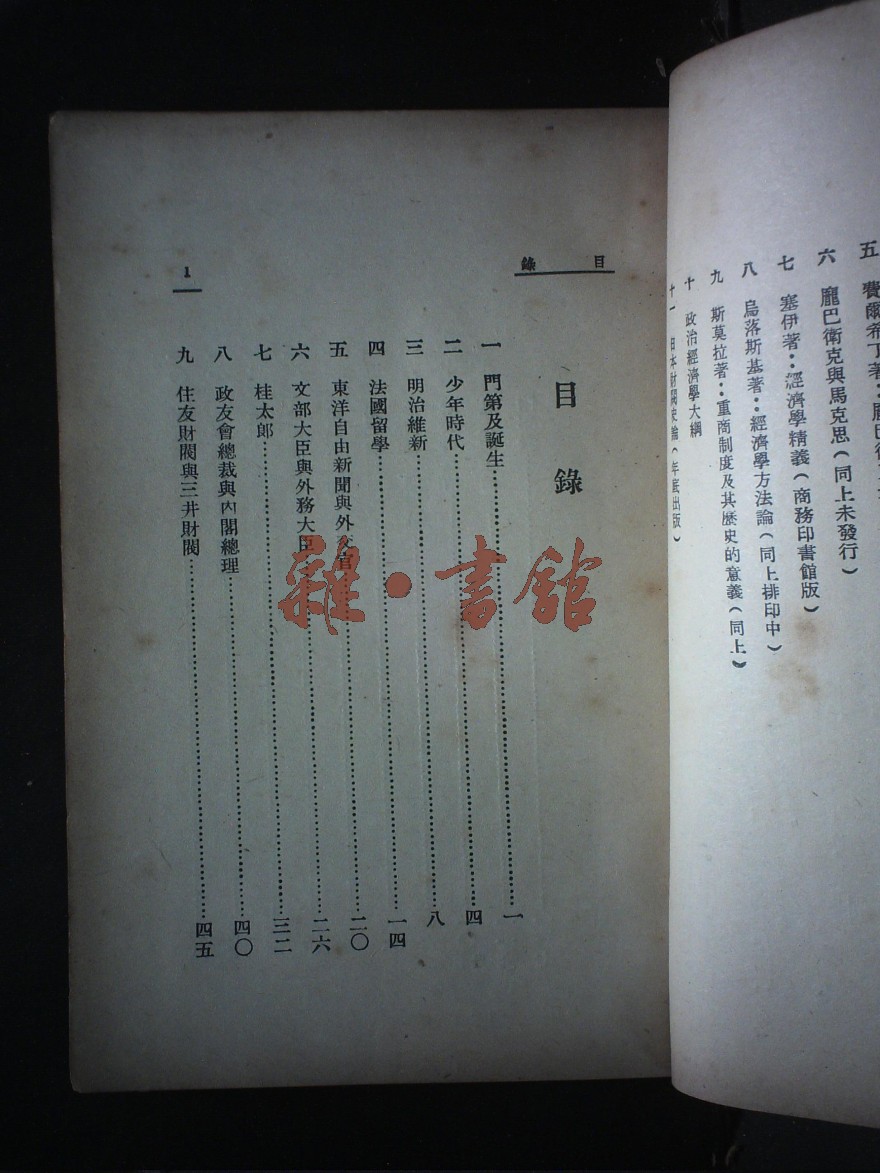 五　費爾希丁著：龐巴衛
六　龐巴衛克與馬克思（同上未發行）
七　塞伊著：經濟學精義（商務印書館版）
八　烏落斯基著：經濟學方法論（同上排印中）
九　斯莫拉著：重商制度及其歷史的意義（同上）
十　政治經濟學大綱
十一　日本財閥史論（年底出版）
目錄
目錄
一　門第及誕生……一
二　少年時代……四
三　明治維新……八
四　法國留學……一四
五　東洋自由新聞與外交官……二〇
六　文部大臣與外務大臣……二六
七　桂太郎……三二
八　政友會總裁與內閣總理……四〇
九　住友財閥與三井財閥……四五
1
雜·書館